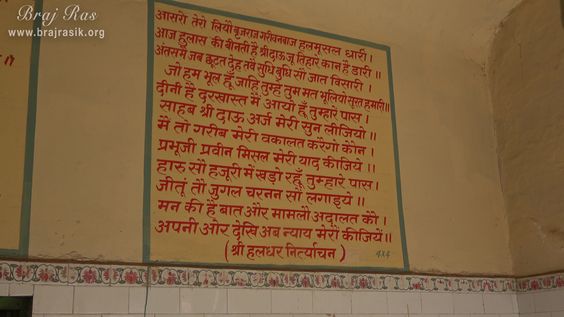 Braj Ras
www.brajrasik.org
आसरो तेरो लियौ बृजराज गरीबनबाज हलमूसल धारी।
आज हुलास की बीनती है श्री दाऊ जू तिहारे कान है डारी।।
अंतसमै जब छूटत देह तबै सुधि बुधि सौं जात विसारी।
जो हम भूल हूँ जाहि तुम्हें तुम मत भूलियो सूरत हमारी।।
दीनी है दरखास्त मैं आयो हूँ तुम्हारे पास।
साहब श्री दाऊ अर्ज मेरी सुन लीजियो।।
मैं तो गरीब मेरी वकालत करेगो कौन।
प्रभूजी प्रवीन मिसल मेरी याद कीजिये।।
हारु सौ हजूरी में खड़ो रहूँ तुम्हारे पास।
जीतूं तौ जुगल चरनन सौं लगाइये।।
मन की है बात और मामलौ अदालत कौ।
अपनी ओर देखि अब न्याय मेरो कीजियें।।
(श्री हलधर निर्त्याचन)
4x4